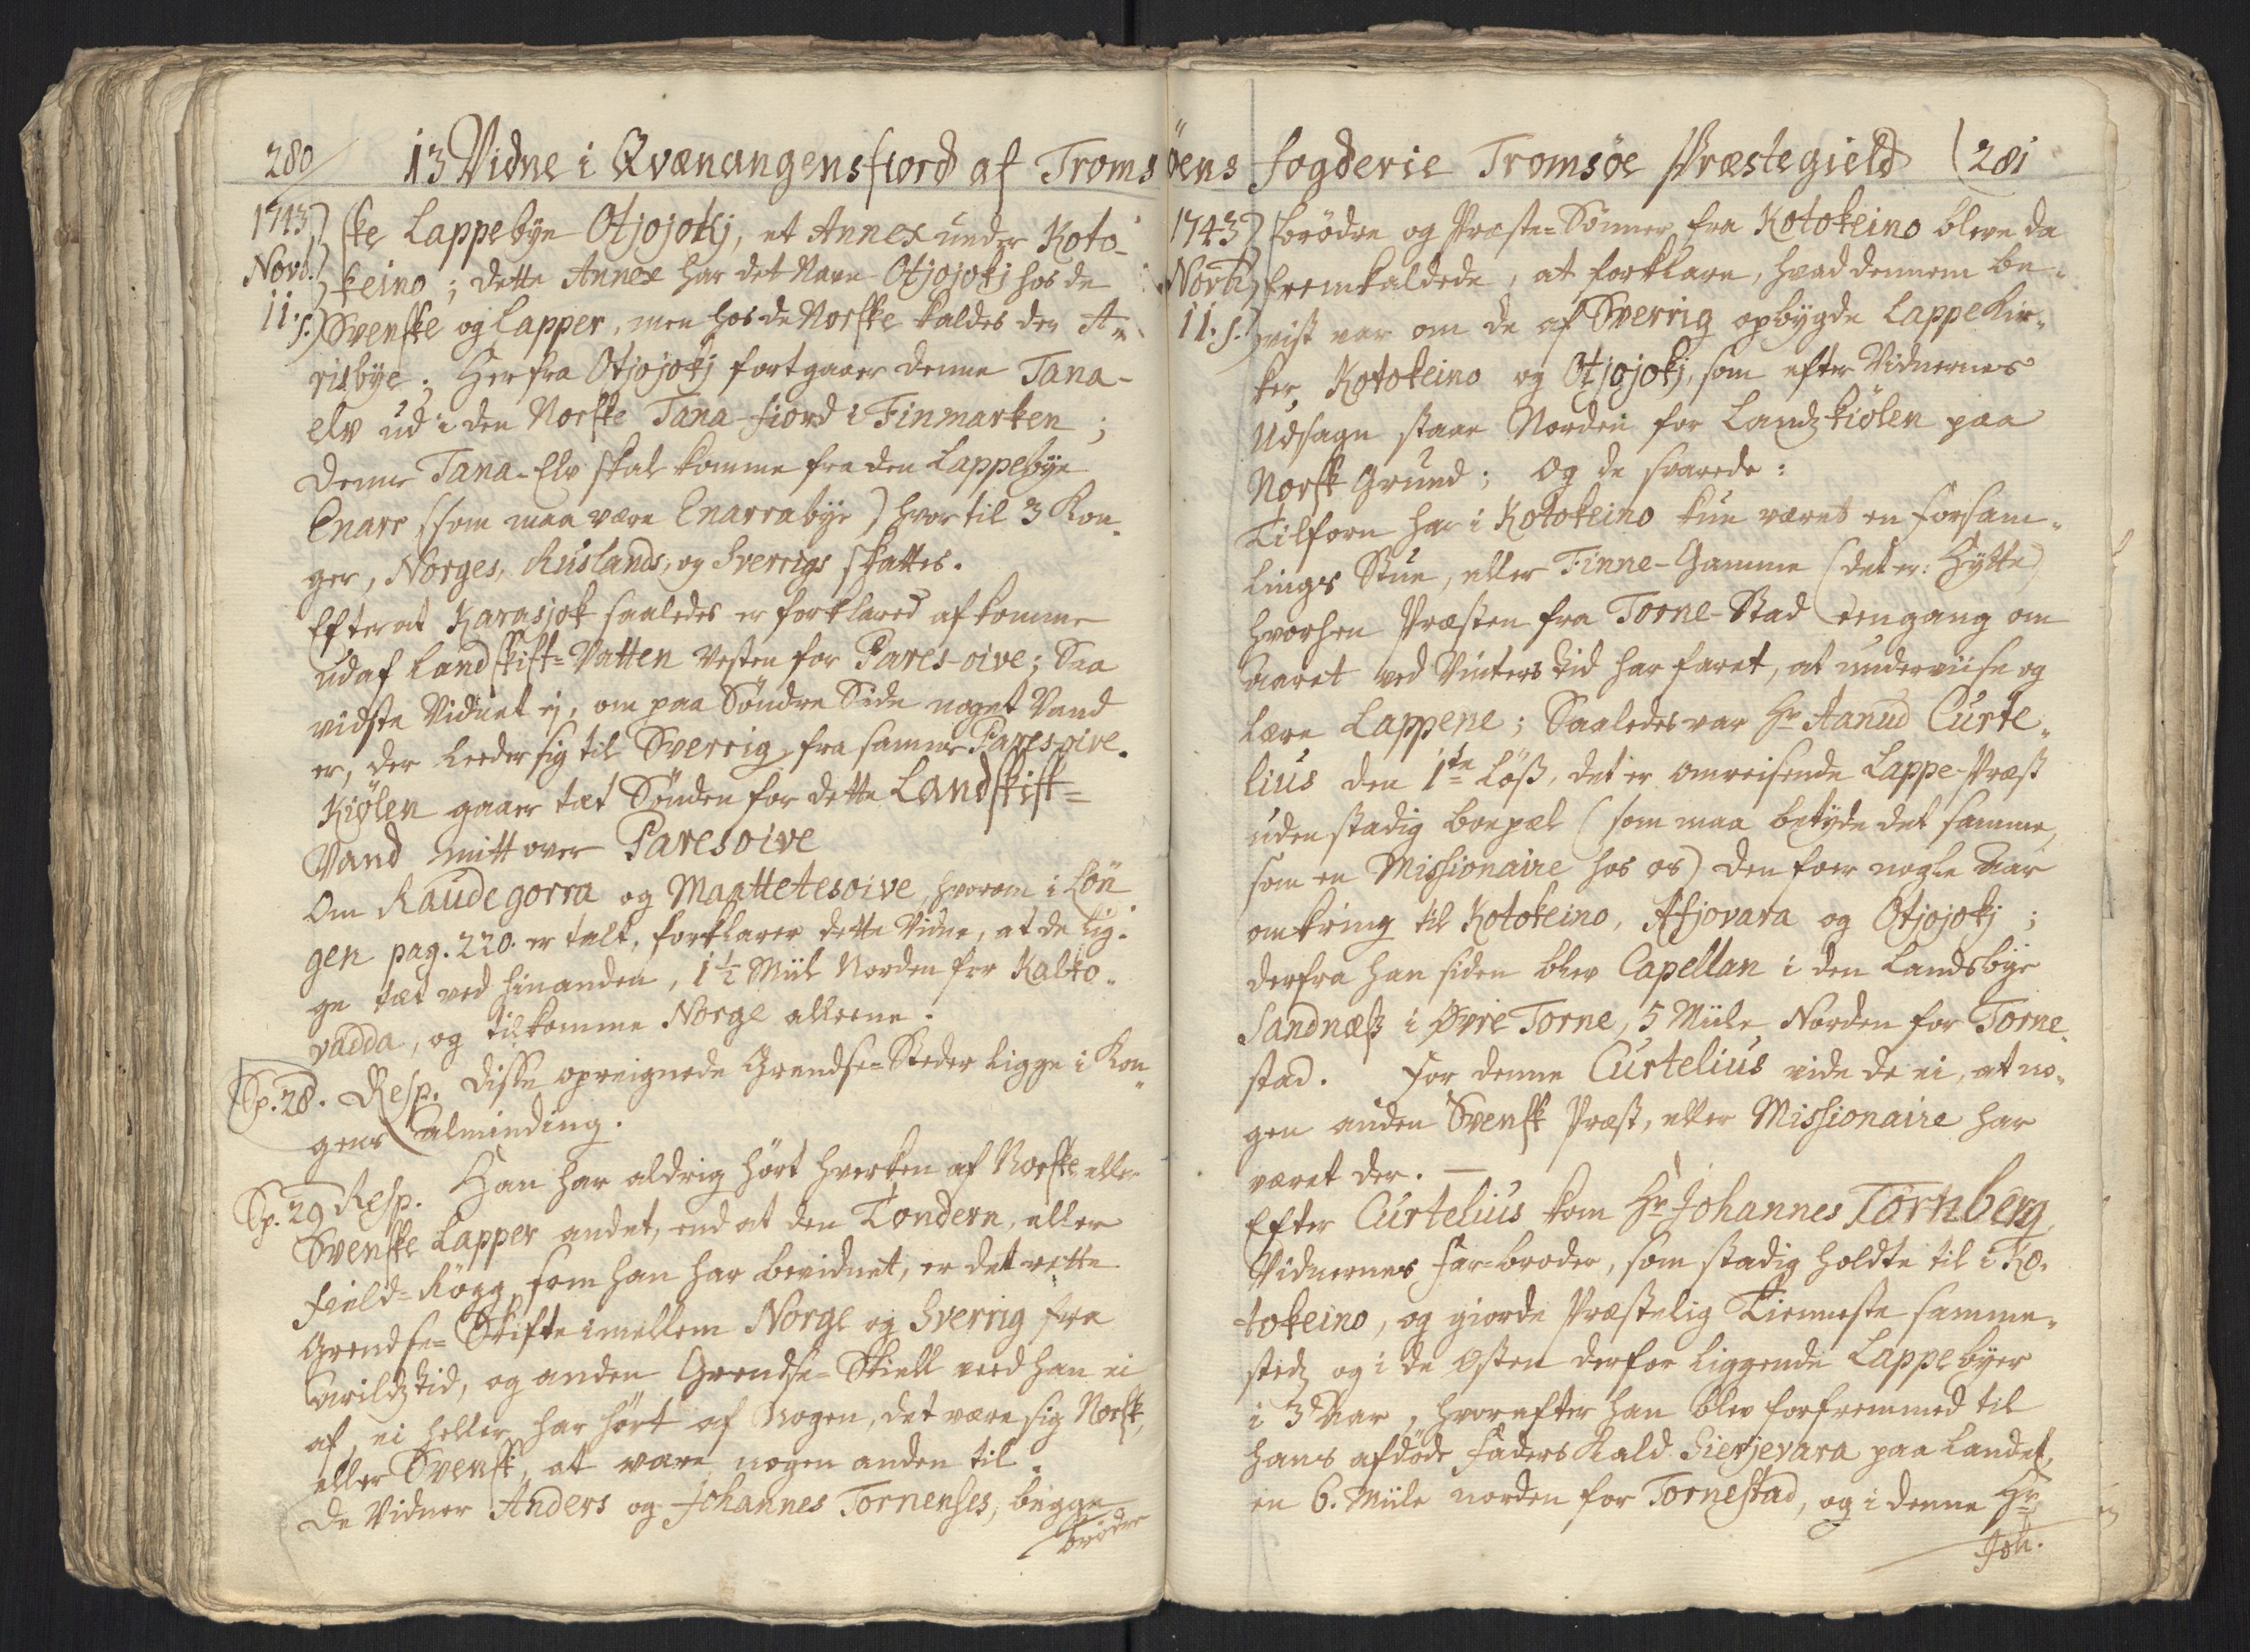 280
13 Vidne i Qvænangensfiord af Troms
1743
Novb.
11. s.
ske Lappebÿe Otjojokj, et Annex under Koto-
keino; dette Annex har det Navn Otjojokj hos de
Svenske og Lapper, men hos de Norske kaldes den A-
risbÿe. Herfra Otjojokj fortgaaer denne Tana-
elv ud i den Norske Tana-fiord i Finmarken;
Denne Tana-Elv skal komme fra den Lappebÿe
Enare (som maa være Enarrabÿe) hvortil 3 Kon-
ger, Norges, Ruslands, og Sverrigs skattes.
Efter at Karasjok saaledes er forklared afkomme
udaf Landskift=Vatten Vesten for Pares-oive; Saa
vidste Vidnet ej, om paa Söndre Side noget Vand
er, der leeder sig til Sverrig fra samme Paresoive.
Kiölen gaaer tæt Sönden for dette Landskift=
Vand mitt over Paresoive
Om Raudegorra og Maattetesoive, hvorom i Lön-
gen pag. 220. er talt, forklarer dette Vidne, at de lig-
ge tæt ved hinanden, 1½ Miil Norden for Kalko-
vadda, og tilkomme Norge alleene.
Sp. 28. Resp. Disse opreignede Grendse=Steder ligge i Kon-
gens Alminding.
Sp. 29 Resp. Han har aldrig hört hverken af Norske eller
Svenske Lapper andet, end at den Tondern, eller
Field=Rögg, som han har bevidnet, er det rette
Grendse=Skifte imellem Norge og Sverrig fra
Arildz tid, og anden Grendse=Skiell veed han ei
af, ei heller har hört af Nogen, det være sig Norsk,
eller Svensk, at være nogen anden til.
De Vidner Anders og Johannes Tornenses, begge
brödre
öens fogderie Tromsöe Præstegield
281
1743
Novb.
11. s.
brödre og Præste=Sönner fra Kotokeino bleve da
fremkaldede, at forklare, hvad dennem be-
vist var om de af Sverrig opbÿgde Lappekir-
ker, Kotokeino og Otjojokj, som efter Vidnernes
Udsagn staar Norden for Landz kiölen paa
Norsk Grund; Og de svarede:
Tilforn har i Kotokeino kun været en forsam-
lings Stue, eller Finne-Gamme (det er: Hÿtte)
hvorhen Præsten fra Torne-Stad eengang om
Aaret ved Vinters tid har faret, at underviise og
lære Lappene; Saaledes var Hr Aanud Curte-
lius den 1te Löss, det er omreisende Lappe-Præst
uden stadig boepæl (som maa betÿde det samme,
som en Missionaire hos os) den foer nogle Aar
omkring til Kotokeino, Afjovara og Otjojokj;
derfra han siden blev Capellan i den Landsbÿe
Sandnæss i Øvre Torne, 5 Miile Norden for Torne-
stad. For denne Curtelius vide de ei, at no-
gen anden Svensk Præst, eller Missionaire har
været der. —
Efter Curtelius kom Hr Johannes Tornberg
Vidnernes far-broder, som stadig holdte til i Ko-
tokeino, og giorde Præstelig Tienneste samme-
stedz og i de Østen derfor liggende Lappebÿer
i 3 Aar, hvorefter han blev forfremmed til
hans afdöde faders Kald Sierjevara paa Landet,
en 6. Miile norden for Tornestad, og i denne Hr
Joh.